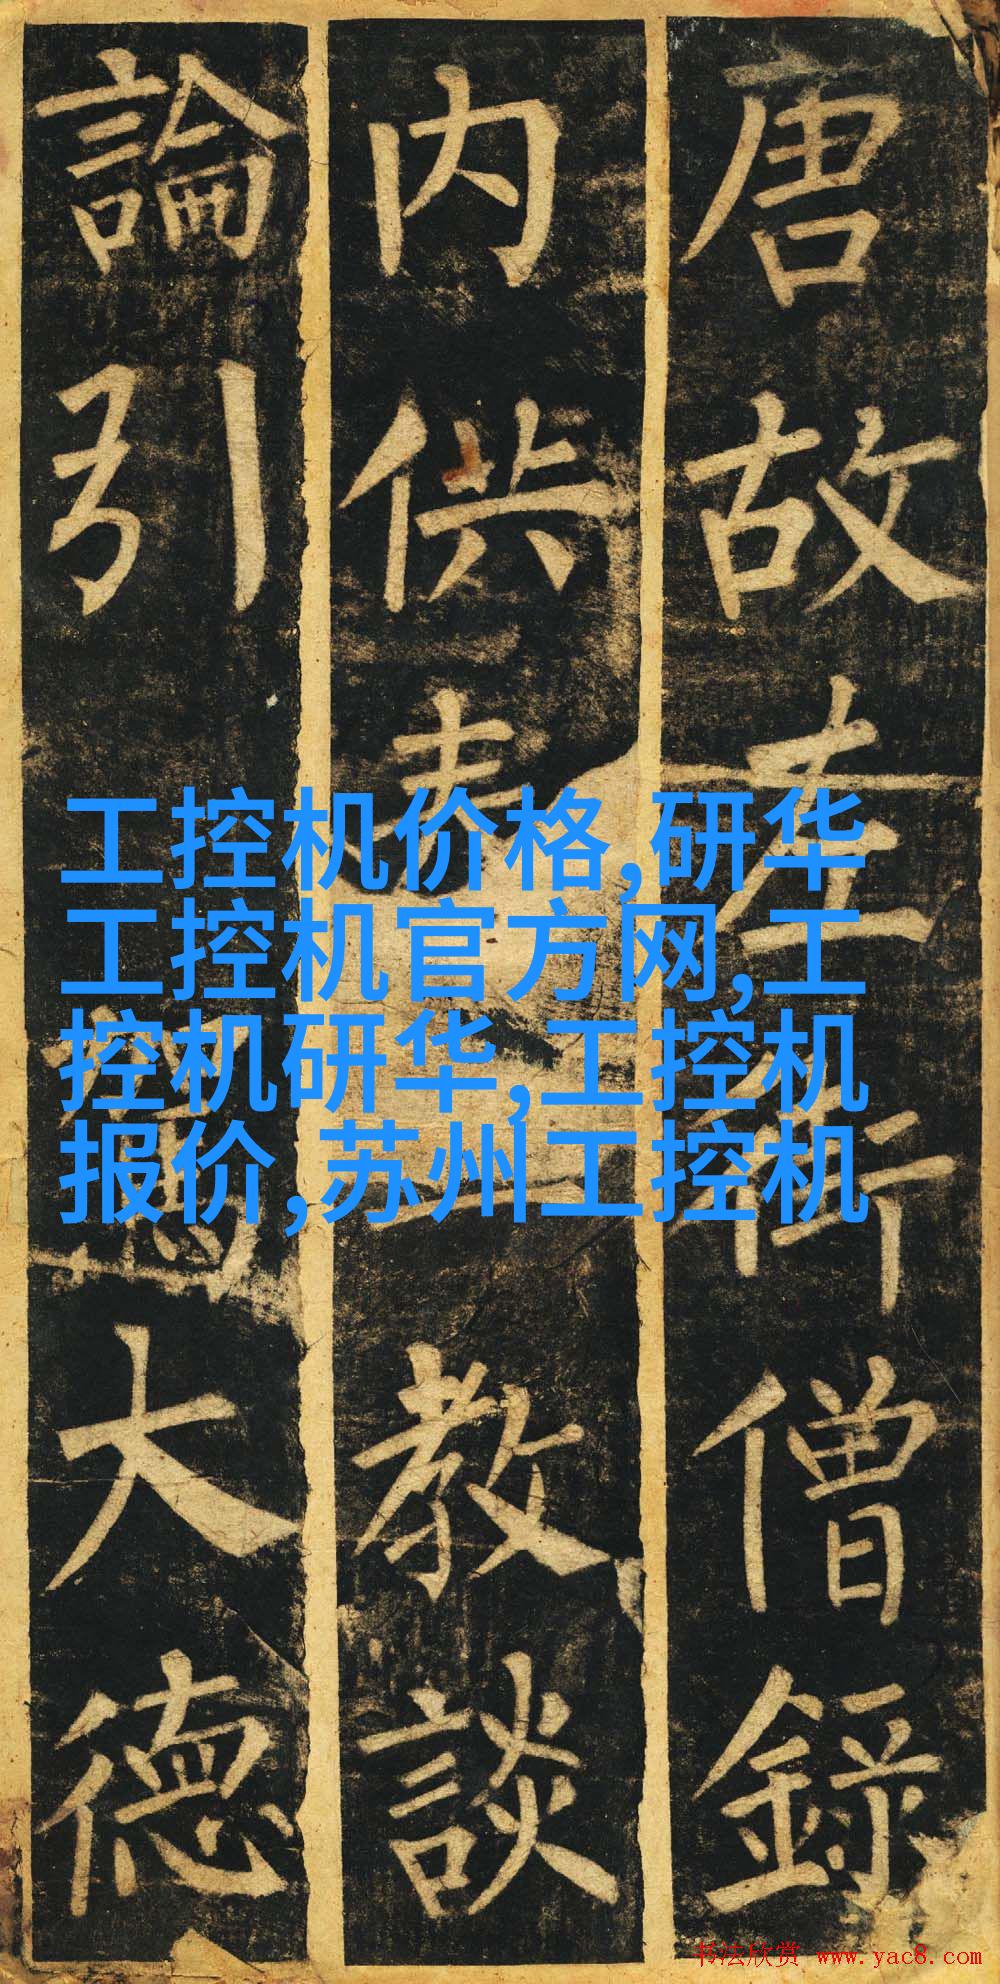 唐故左街僧錄
内供奉三教談
論引駕大德
工控机价格,研华
工控机官方网,工
控机研华,工控机
报价,苏州工控机
书法欣赏 www.yac8.com